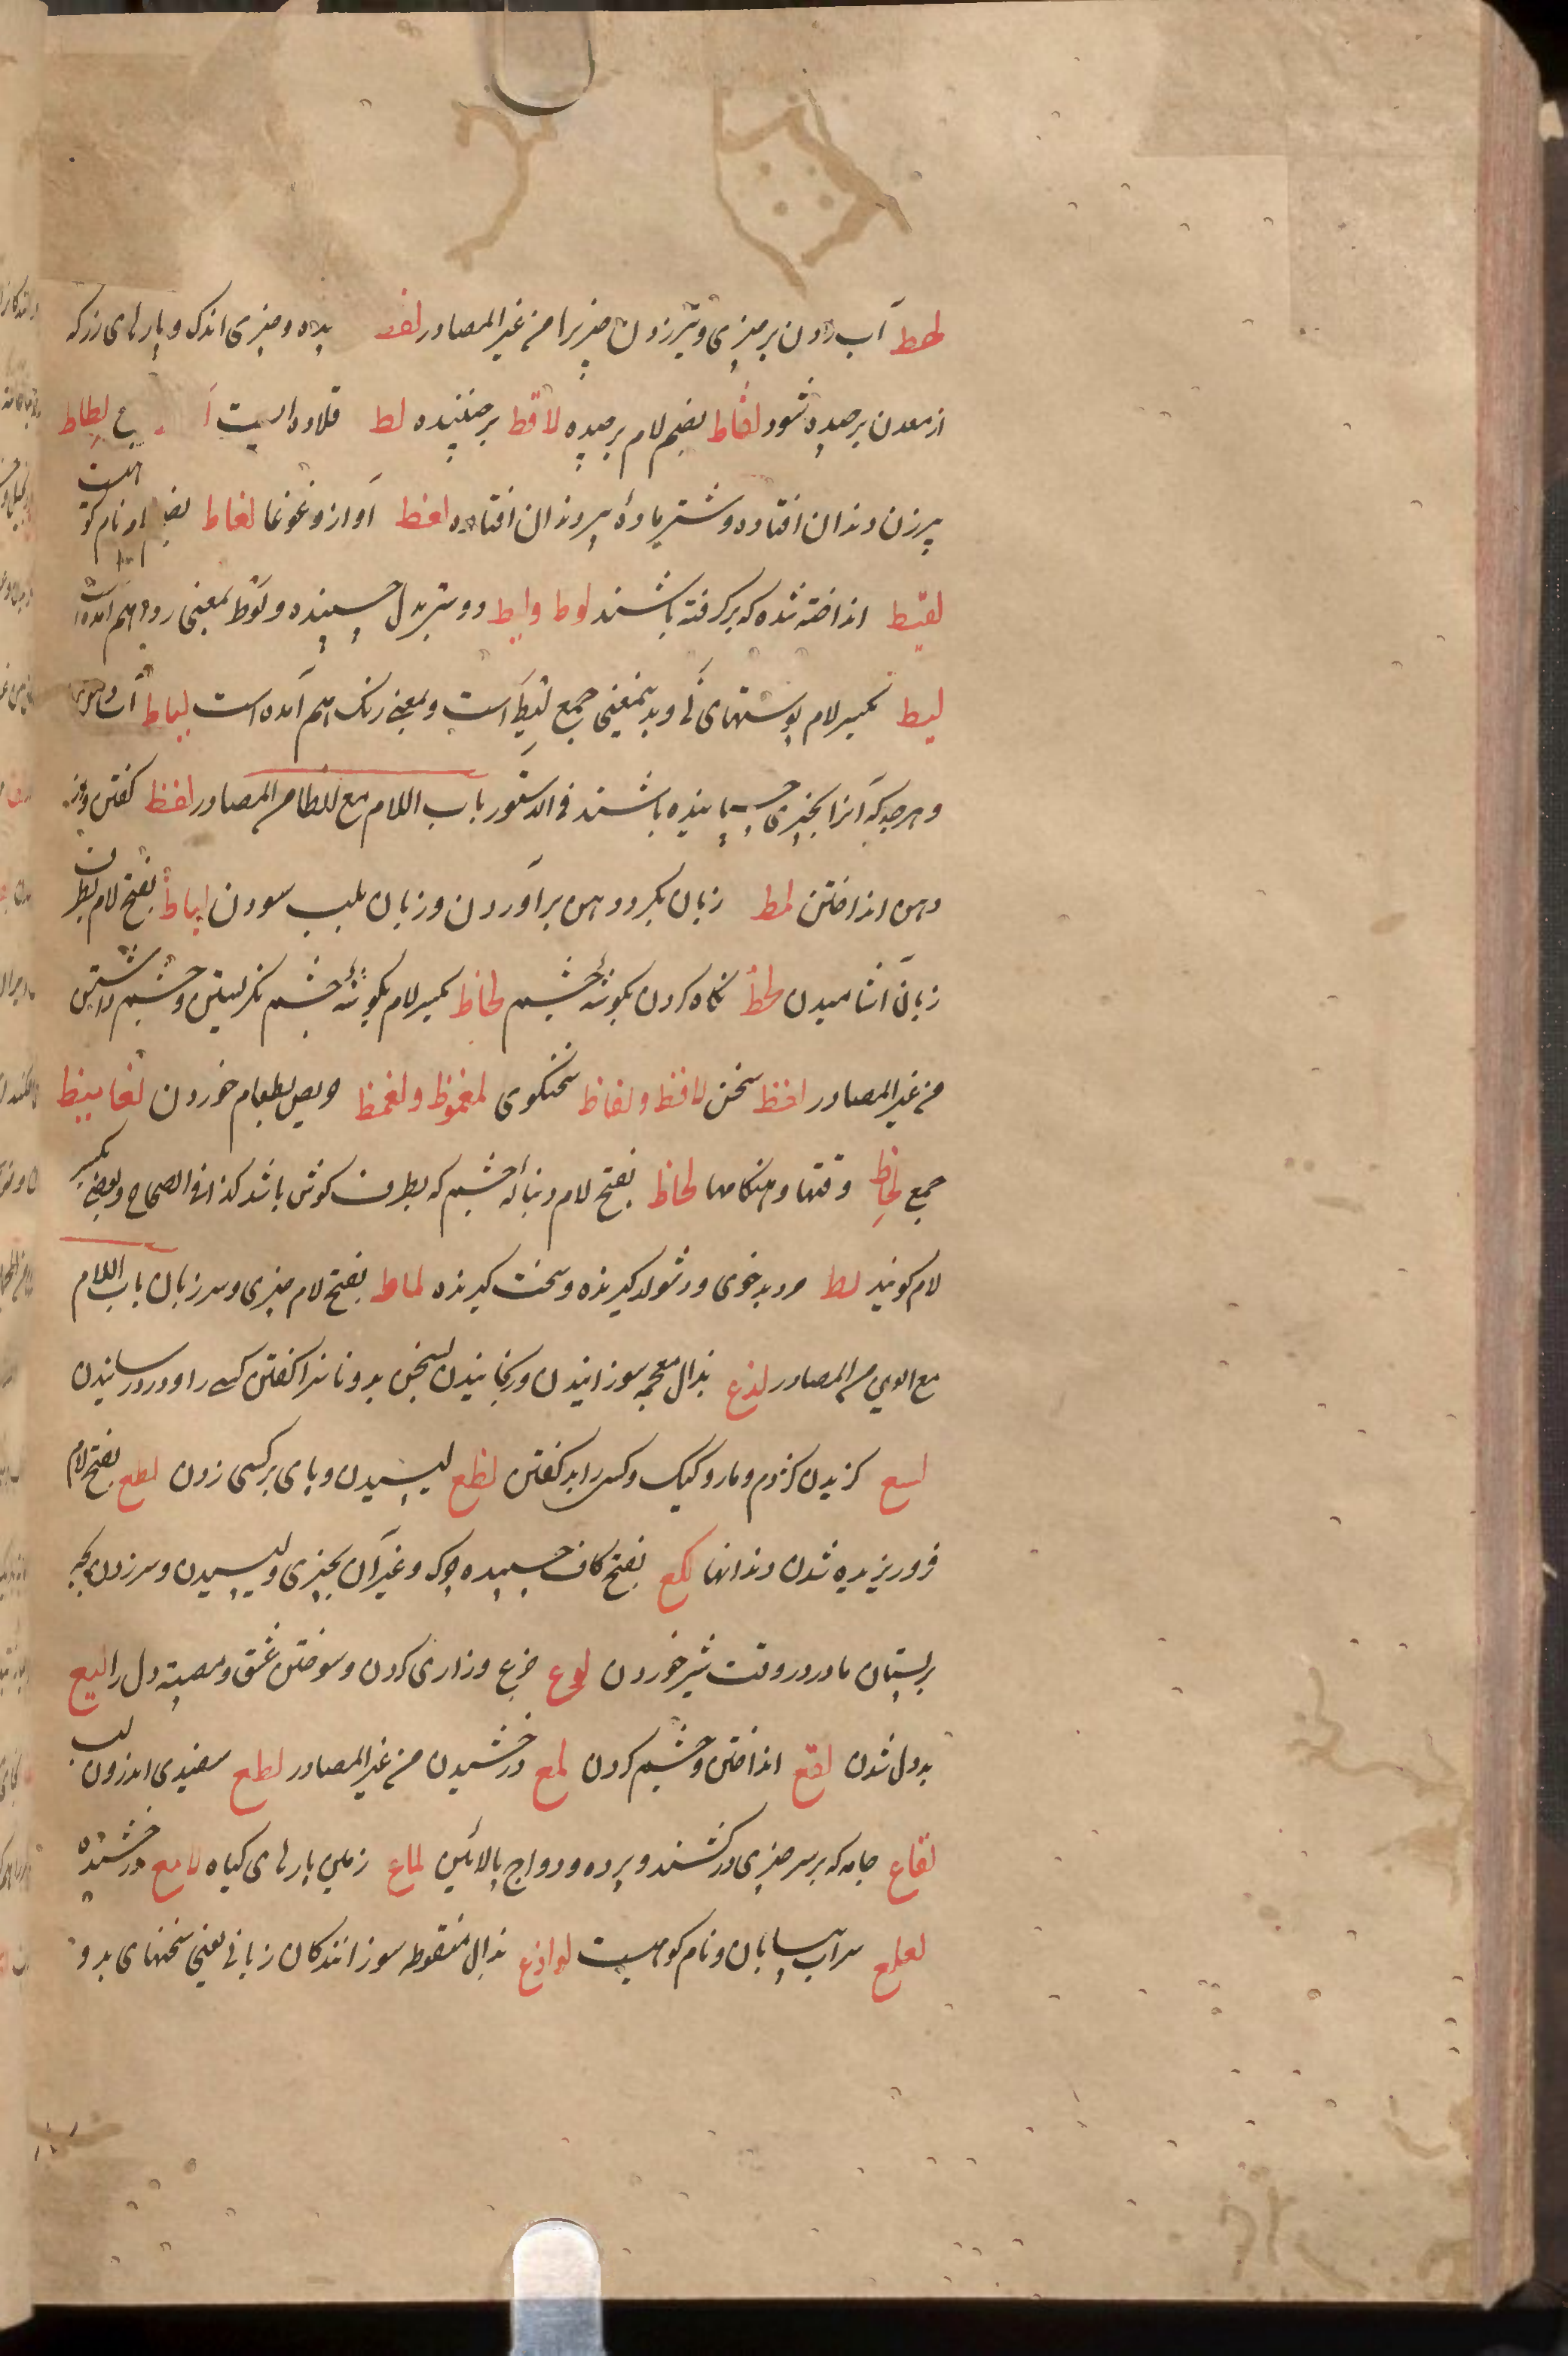 لحط آب زدن بر چیزی و تیر زدن چیزیرا من غیر المصادر لقط چیده و چیزی اندک و پارهای زر که
از معدن برچیده شود لقاط بضم لام برچیده لاقط برچیننده لط قلاده ایست لطاط
پیرزن دندان افتاده و شتر ماده پیر دندان افتاده لغط آواز و غوغا لغاط نام کوه است
لقیط انداخته شده که برگرفته باشند لوط ولیط دوستر بدل چسپنده و لوط بمعنی ردا هم آمده است
لیط بکسر لام پوستهای نی و بدینمعنی جمع لیطه است و بمعنی رنک هم آمده است لیاط آهک و
و هرچه که آنرا بچیزی چسپانیده باشند فی الدستور باب اللام مع الظا من المصادر لفظ کفتن و از
دهن انداختن لمظ زبان بکرد دهن برآوردن و زبان بلب سودن لماظ بفتح لام بطرف
زبان آشامیدن لحظ نکاه کردن بکوشهٔ چشم لحاظ بکسر لام بکوشهٔ چشم نکریستن و چشم داشتن
من غیر المصادر لفظ سخن لافظ و لفاظ سخنکوی لغموظ و لغمظ حریص بطعام خوردن لغامیظ
جمع لحاظ وقتها و هنکامها لحاظ بفتح لام دنبالهٔ چشم که بطرف کوش باشد کذا فی الصحاح و بعضی بکسر
لام کویند لظ مرد بدخوی و دشوار کیرنده و سخت کیرنده لماظ بفتح لام چیزی و سر زبان باب اللام
مع العین من المصادر لذع بذال معجمه سوزانیدن و رنجانیدن بسخن بد و ناسزا کفتن کسی را و درد رسانیدن
لسع کزیدن کژدم و مار و کیک و کسی را بد کفتن لطع لیسیدن و پای بر کسی زدن لطع بفتح لام
فرو ریزیده شدن دندانها لکع بفتح کاف چسپیده چرک و غیر آن بچیزی و لیسیدن و سر زدن بچه
بر پستان مادر در وقت شیر خوردن لوع جزع و زاری کردن و سوختن عشق و مصیبت دل را لیع
بد دل شدن لقع انداختن و چشم کردن لمع درخشیدن من غیر المصادر لطع سفیدی اندرون لب
لفاع جامه که بر سر چیزی در کشند و پرده و دواج بالائین لماع زمین پارهای کیاه لامع درخشنده
لعلع سراب بیابان و نام کوهیست لواذع بذال منقوطه سوزانندکان زبانی یعنی سخنهای بد و